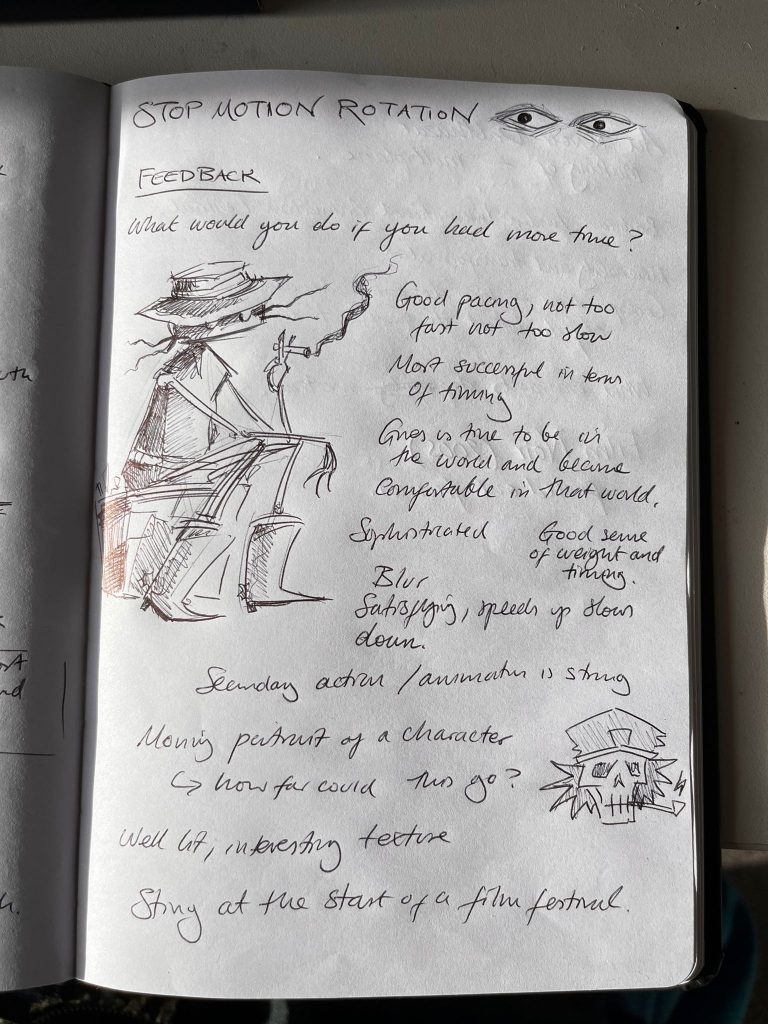 STOP MOTION ROTATION
FEEDBACK
What would you do if you had more time?
Good pacing, not too
fast not too slow
Most successful in terms
of timing
Gives us time to be in
the world and become
comfortable in that world.
Sophisticated
Good sense
of weight and
timing.
Blur
Satisfying, speeds up slows
down.
Secondary action / animation is strong
Moving portrait of a character
↳ how far could this go?
Well lit, interesting texture
Sting at the start of a film festival.